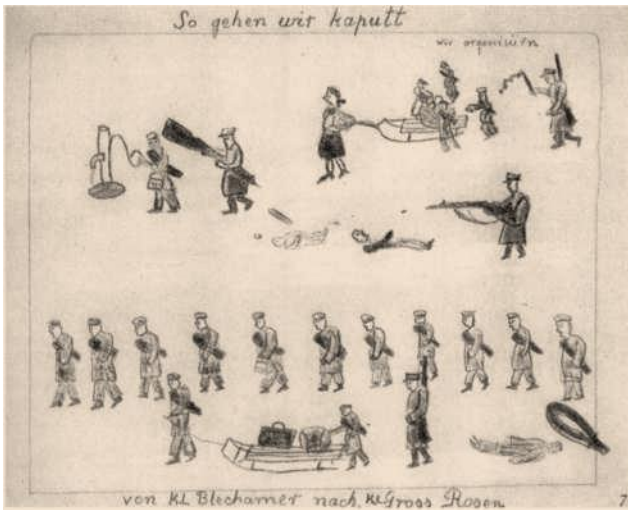 So gehen wir kaputt
wir organisiern
von KL Blechamer nach KL Gross Rosen
7